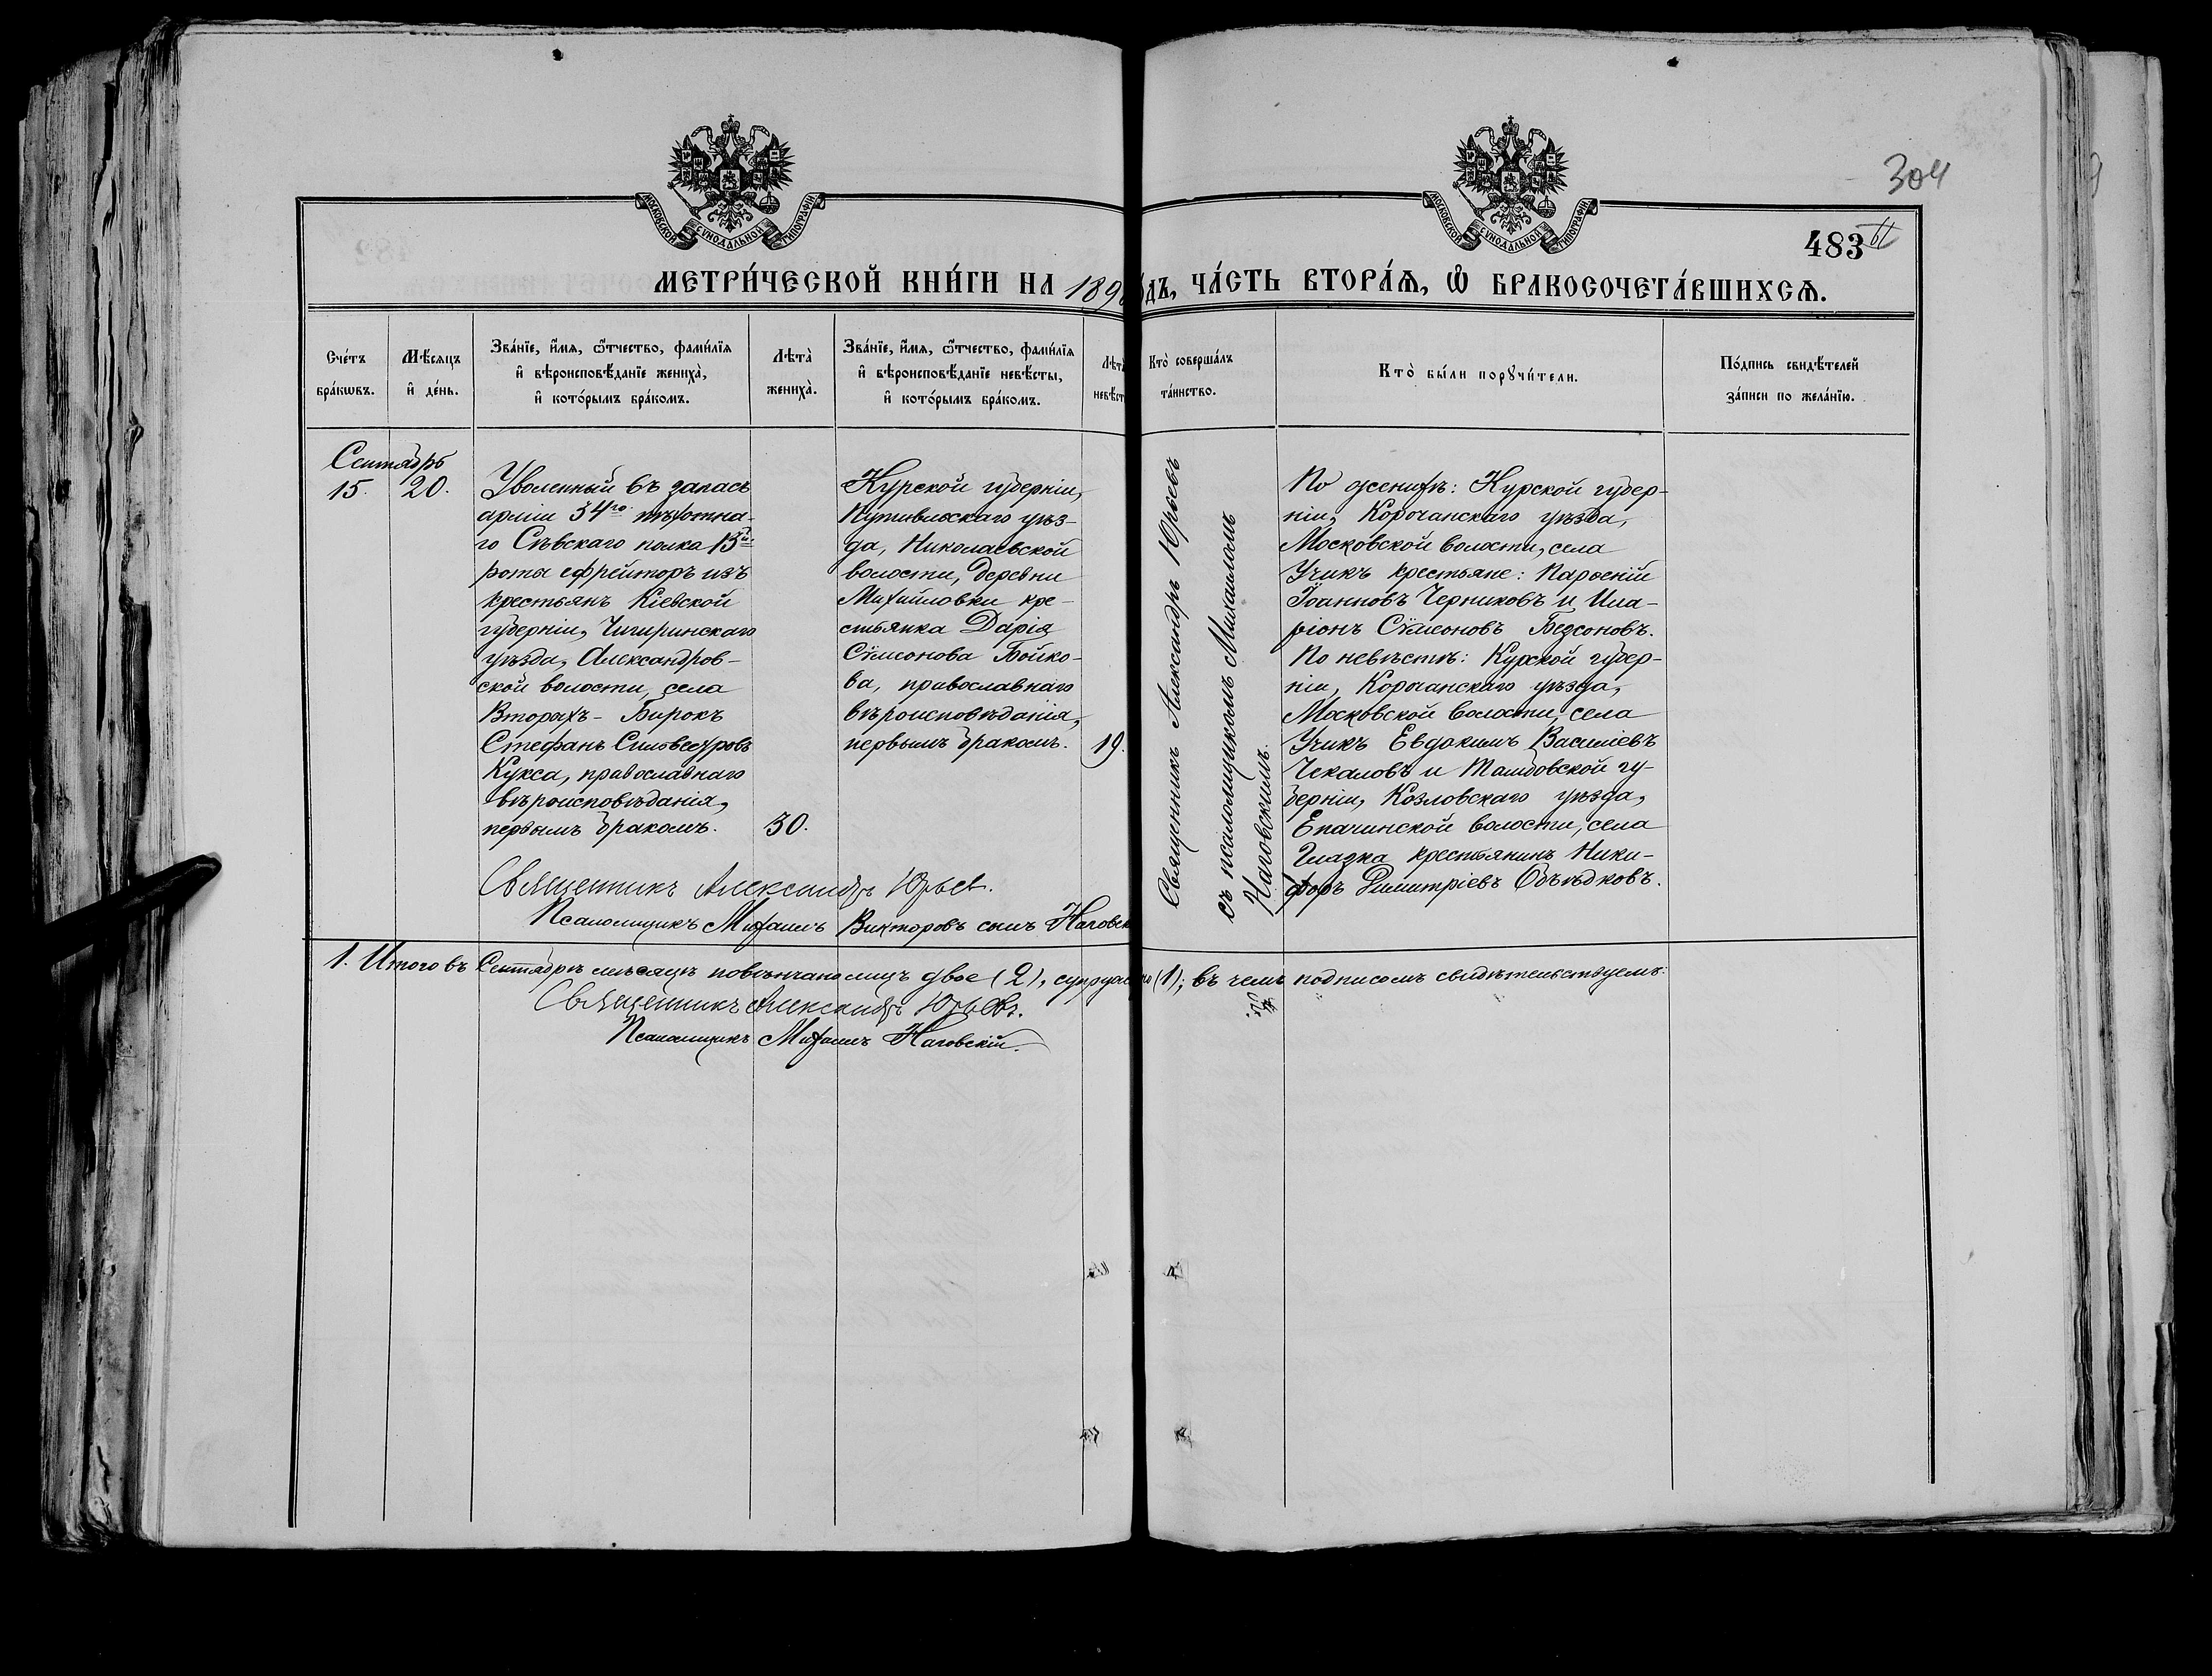 304
483
МОСКОВСКОЙ СѴНОДАЛЬНОЙ ТИПОГРАФІИ
МОСКОВСКОЙ СѴНОДАЛЬНОЙ ТИПОГРАФІИ
МЕТРИ́ЧЕСКОЙ КНИ́ГИ НА 189
ДЪ, ЧА́СТЬ ВТОРА́Ѧ, Ѽ БРАКОСОЧЕТА́ВШИХСѦ.
Сче́тъ бра́кωвъ.
Мѣ́сяцъ и҆ де́нь.
Зва́нїе, и҆́мѧ, ѻ҆́тчество, фами́лїѧ
и҆ вѣроисповѣ́данїе жениха̀,
и҆ кото́рымъ бра́комъ.
Лѣта̀ жениха̀.
Зва́нїе, и҆́мѧ, ѻ҆́тчество, фами́лїѧ
и҆ вѣроисповѣ́данїе невѣ́сты,
и҆ кото́рымъ бра́комъ.
Лѣта
невѣст
Кто̀ соверша́лъ
та́инство.
Кто̀ бы́ли порꙋчи́тели.
По́дпись свидѣ́телей
за́писи по жела́нїю.
Сентябрь
15. 20.
Уволенный въ запасъ
арміи 34го пѣхотна-
го Сѣвскаго полка 13й
роты ефрейторъ изъ
крестьянъ Кіевской
губерніи, Чигиринскаго
уѣзда, Александров-
ской волости, села
Вторыхъ-Бирокъ
Стефанъ
Кукса, православнаго
вѣроисповѣданія,
первымъ бракомъ. 30.
Курской губерніи,
Путивльскаго уѣз-
да, Николаевской
волости, деревни
Михайловки кре-
стьянка Дарія
Сѵмеонова Бойко-
ва, православнаго
вѣроисповѣданія,
первымъ бракомъ. 19.
Священникъ Александръ Юрьевъ
съ псаломщикомъ Михаиломъ
Наговскимъ.
По женихѣ: Курской губер-
ніи, Корочанскаго уѣзда,
Московской волости, села
Учикъ крестьяне: Парѳеній
Іоанновъ Черниковъ и Ила-
ріонъ Сѵмеоновъ Безсоновъ.
По невѣстѣ: Курской губер-
ніи, Корочанскаго уѣзда,
Московской волости, села
Учикъ Евдокимъ Василіевъ
Чекаловъ и Тамбовской гу-
берніи, Козловскаго уѣзда,
Епачинской волости, села
Глазка крестьянинъ Ники-
форъ Димитріевъ Объѣдковъ.
Священникъ Александръ Юрьев.
Псаломщикъ Михаилъ Викторовъ сынъ Наговск
1. Итого въ Сентябрѣ мѣсяцѣ повѣнчано лицъ двое (2), супруж (1); въ чемъ подписомъ свидѣтельствуемъ:
Священникъ Александръ Юрьевъ.
Псаломщикъ Михаилъ Наговскій.